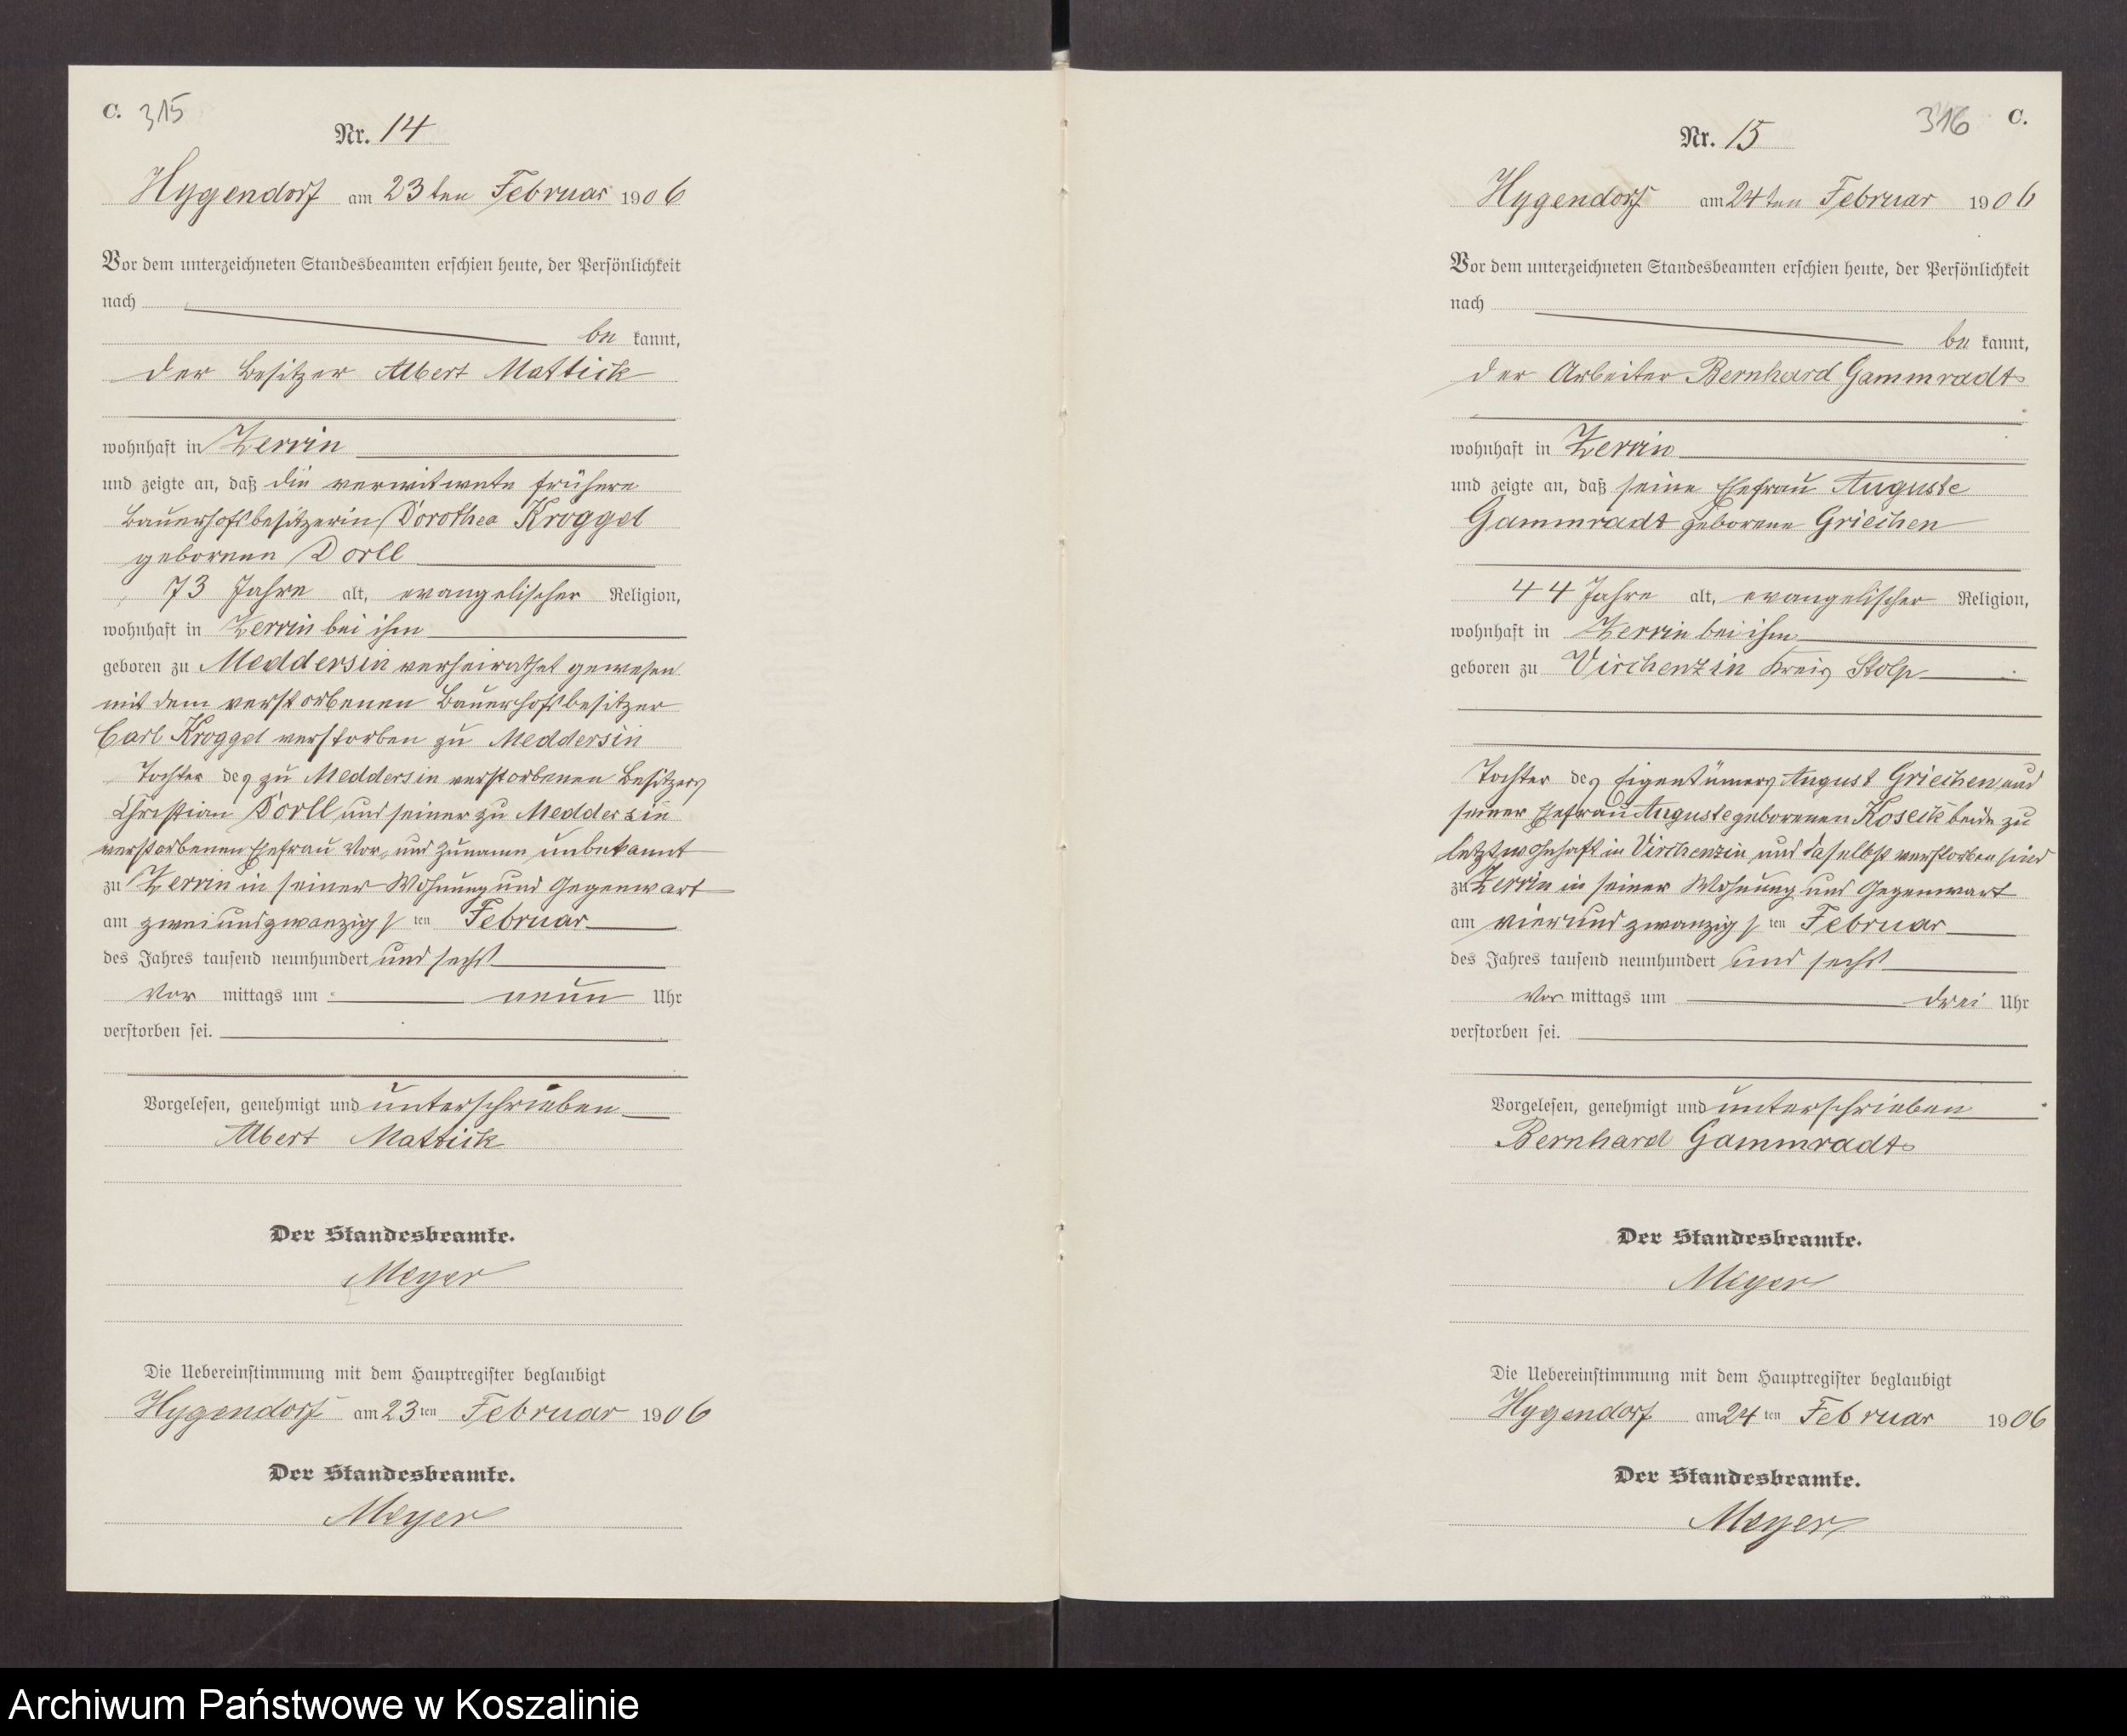 C. 315
Nr. 14
Hygendorf am 23ten Februar 1906
Vor dem unterzeichneten Standesbeamten erschien heute, der Persönlichkeit
nach
be kannt,
der Besitzer Albert Mattick
wohnhaft in Zerrin
und zeigte an, daß die verwitwete frühere
Bauerhofsbesitzerin Dorothea Kroggel
geborenen Dorll
73 Jahre alt, evangelischer Religion,
wohnhaft in Zerrin bei ihm
geboren zu Meddersin verheirathet gewesen
mit dem verstorbenen Bauerhofsbesitzer
Carl Kroggel verstorben zu Meddersin
Tochter des zu Meddersin verstorbenen Besitzers
Christian Dorll und seiner zu Meddersin
verstorbenen Ehefrau Vor- und Zuname unbekannt
zu Zerrin in seiner Wohnung und Gegenwart
am zweiundzwanzigsten Februar
des Jahres tausend neunhundert und sechs
Vor mittags um neun Uhr
verstorben sei.
Vorgelesen, genehmigt und unterschrieben
Albert Mattick
Der Standesbeamte.
Meyer
Die Uebereinstimmung mit dem Hauptregister beglaubigt
Hygendorf am 23ten Februar 1906
Der Standesbeamte.
Meyer
316 C.
Nr. 15
Hygendorf am 24ten Februar 1906
Vor dem unterzeichneten Standesbeamten erschien heute, der Persönlichkeit
nach
be kannt,
der Arbeiter Bernhard Gammradt
wohnhaft in Zerrin
und zeigte an, daß seine Ehefrau Auguste
Gammradt geborene Griechen
44 Jahre alt, evangelischer Religion,
wohnhaft in Zerrin bei ihm
geboren zu Virchenzin Kreis Stolp
Tochter des Eigentümers August Griechen und
seiner Ehefrau Auguste geborenen Koseik beide zu
letzt wohnhaft in Virchenzin und daselbst verstorben sind
zu Zerrin in seiner Wohnung und Gegenwart
am vierundzwanzigsten Februar
des Jahres tausend neunhundert und sechs
Vor mittags um drei Uhr
verstorben sei.
Vorgelesen, genehmigt und unterschrieben
Bernhard Gammradt
Der Standesbeamte.
Meyer
Die Uebereinstimmung mit dem Hauptregister beglaubigt
Hygendorf am 24ten Februar 1906
Der Standesbeamte.
Meyer
Archiwum Państwowe w Koszalinie